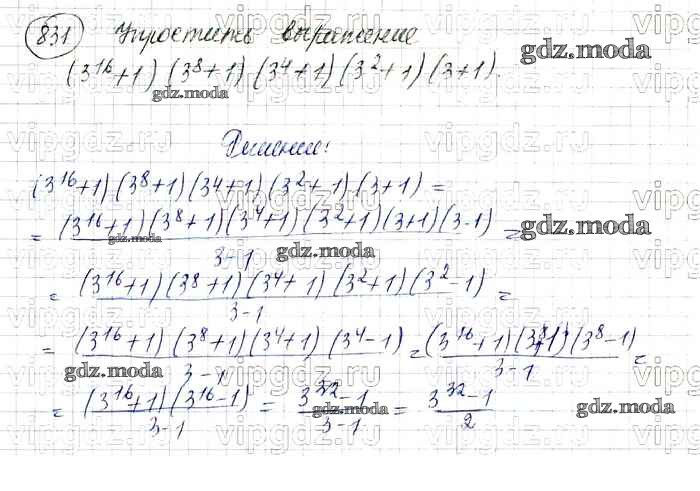 831 Упростить выражение
(3^16+1)(3^8+1)(3^4+1)(3^2+1)(3+1).
Решение:
(3^16+1)(3^8+1)(3^4+1)(3^2+1)(3+1) =
= (3^16+1)(3^8+1)(3^4+1)(3^2+1)(3+1)(3-1) / 3-1 =
= (3^16+1)(3^8+1)(3^4+1)(3^2+1)(3^2-1) / 3-1 =
= (3^16+1)(3^8+1)(3^4+1)(3^4-1) / 3-1 = (3^16+1)(3^8+1)(3^8-1) / 3-1 =
= (3^16+1)(3^16-1) / 3-1 = 3^32-1 / 3-1 = 3^32-1 / 2
gdz.moda
gdz.moda
gdz.moda
gdz.moda
gdz.moda
gdz.moda
gdz.moda
gdz.moda
vipgdz.ru